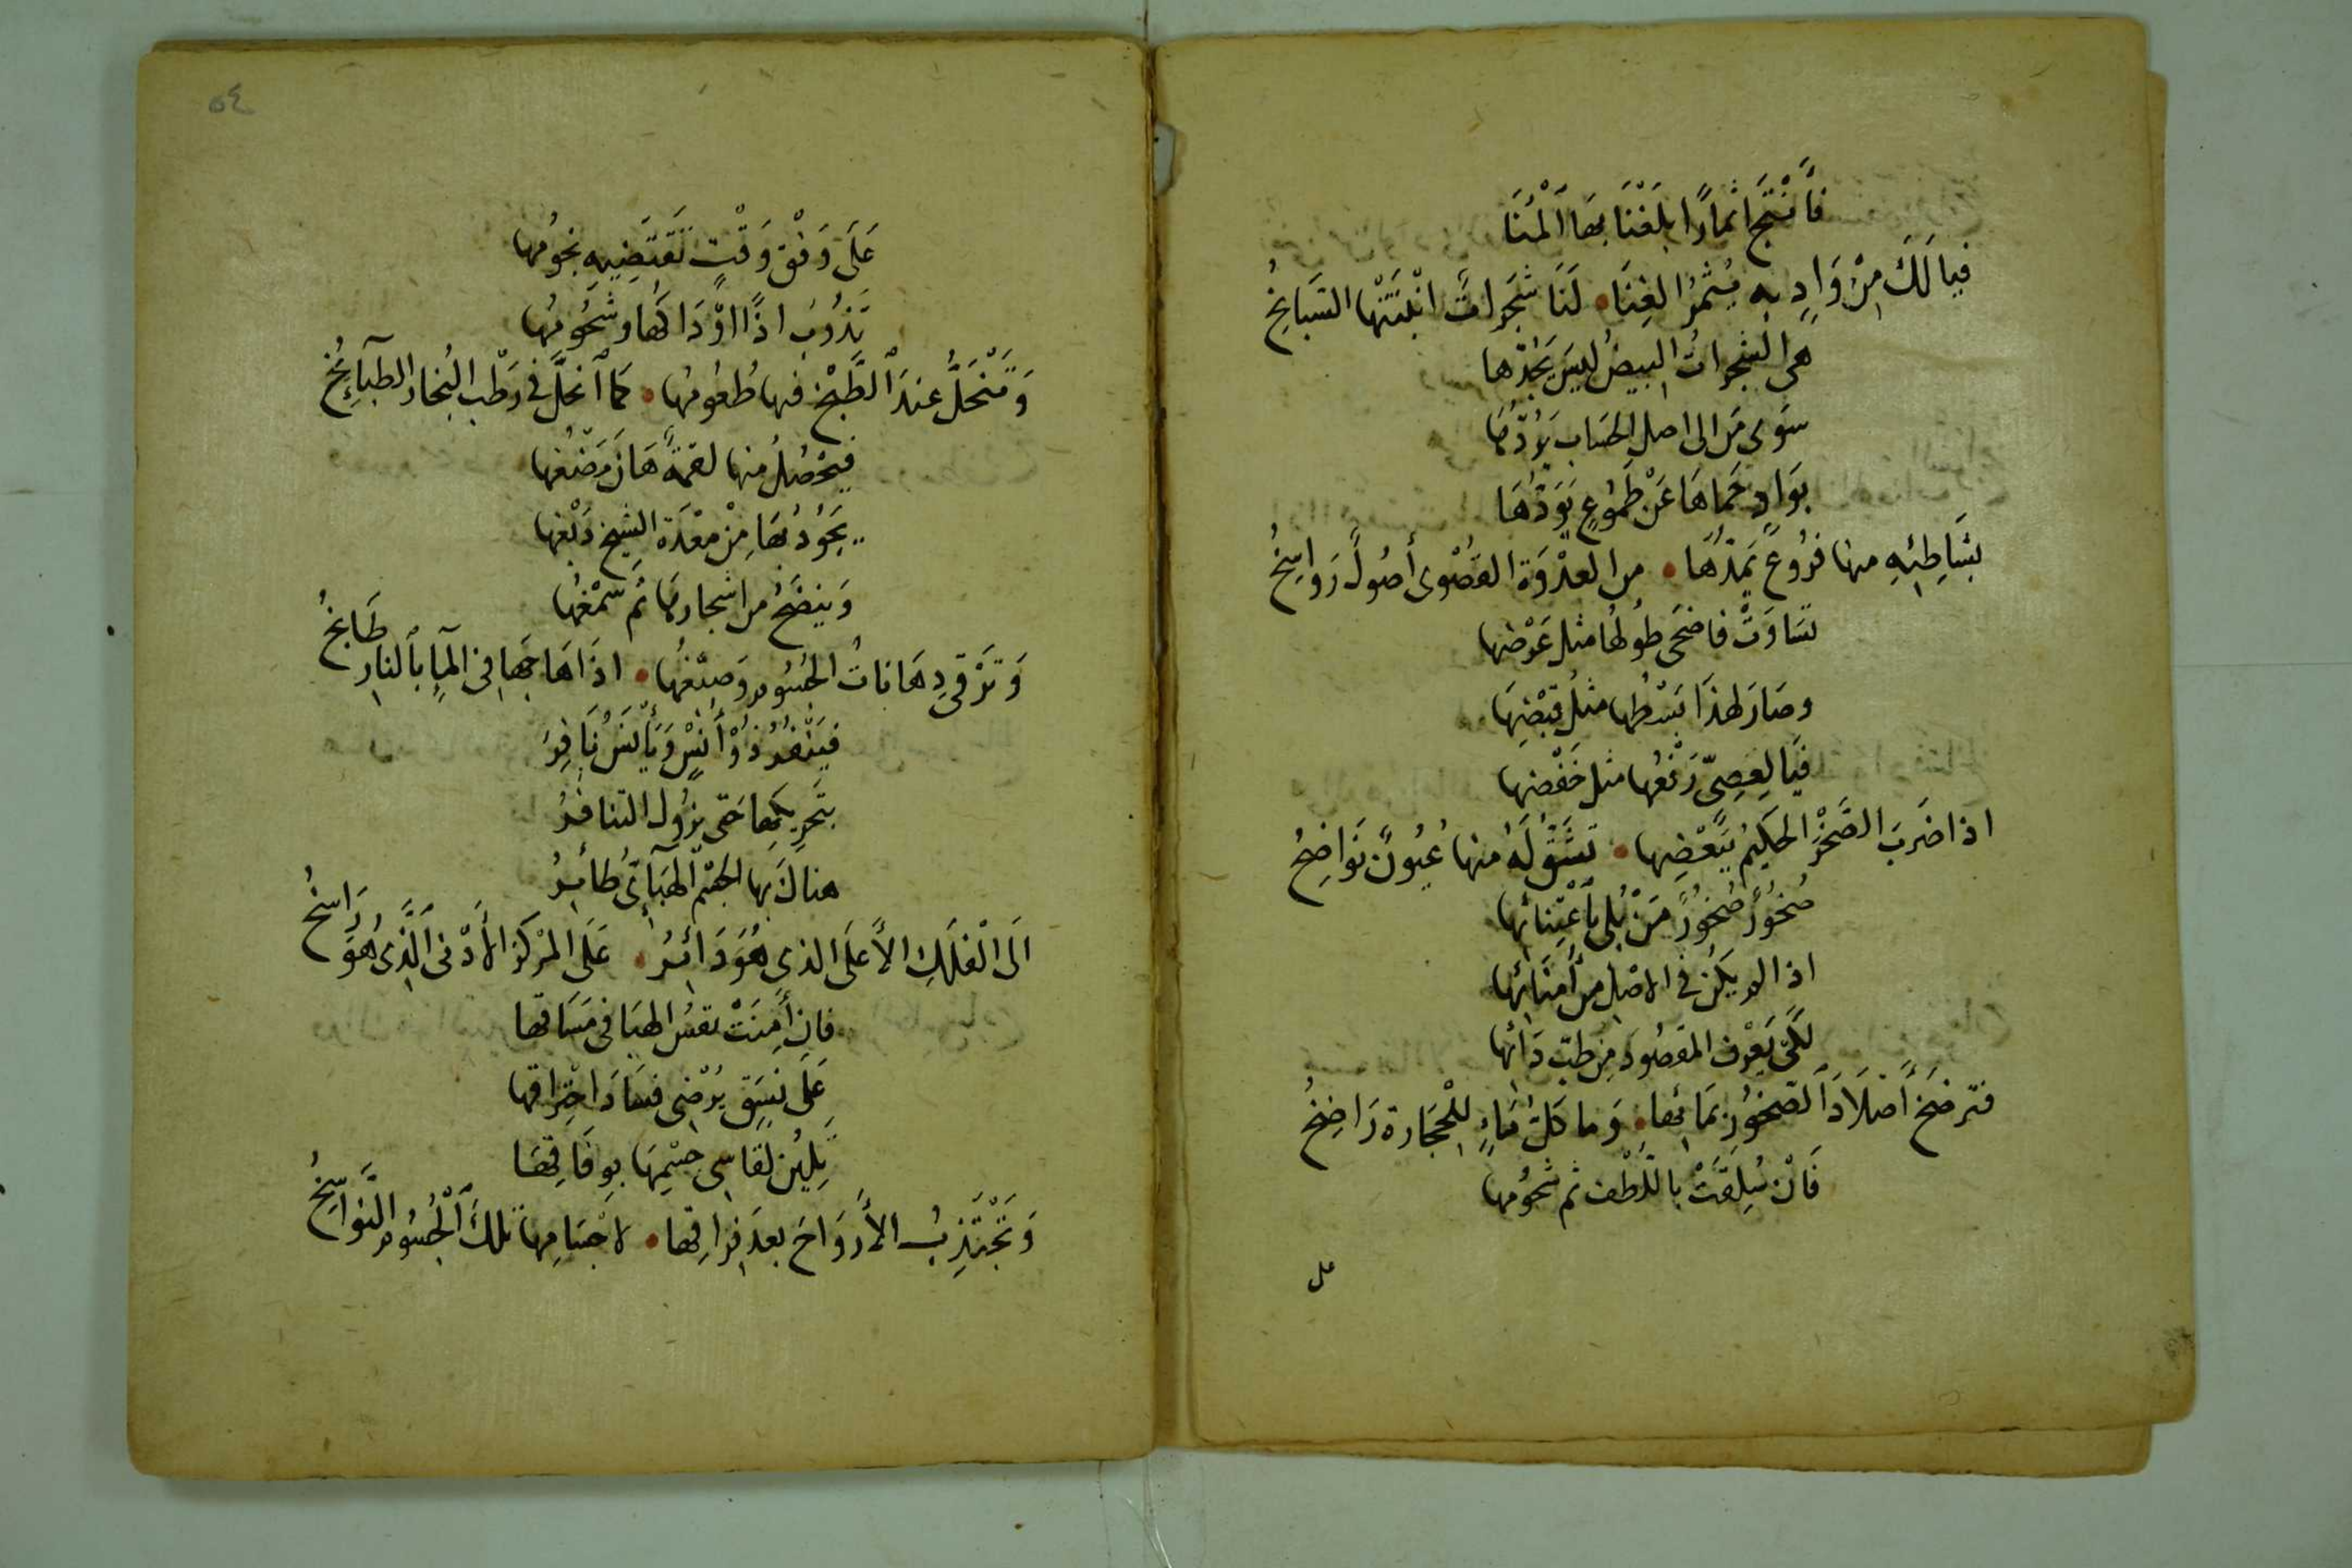 فَأَنْتَجَ اثمارًا بلَغْنَا بهَا ٱلْمُنَا
فيالَكَ مِنْ وَادٍ بهِ يُثْمِرُ الغِنَا • لَنَا شَجَراتٌ انْبَتَتْهَا السَّبَايخُ
هى الشجراتُ البيضُ ليسَ يَحُدّها
سَوى مَن الى اصلِ الحسَاب يَرُدُّهَا
بوَادٍ حَمَاهَا عَنْ طَمُوعٍ يَوَدُّهَا
بشَاطِئِهِ منها فرُوعٌ يَمُدُّهَا • من العدْوَة القصْوى أصُولٌ رَوَاسِخُ
تسَاوَتْ فاضحَى طُولُهَا مثل عَرْضِها
وصَارَ لهذَا بَسْطُها مثلُ قبْضِهَا
فيَا لِعِصِىّ رَفْعُها مثل خَفْضِها
اذا ضَرَبَ الصَّخْرَ الحكيمُ ببَعْضِها • تشَقّ لَهُ منها عُيُونٌ نَوَاضِخُ
صُخُورٌ صُخُورٌ مَنْ بُلى بٱعْتِنائِها
اذا لم يكن فى الاصْلِ مِنْ أُمَنَائِها
لكَىْ يَعْرفَ المقصُودَ مِن طِبّ دَائِها
فترضَخُ أَصْلَادَ ٱلصّخُورِ بمَائِها • وَما كلّ مَاءٍ لِلْحجَارة رَاضِخُ
فَانْ سُلِقَتْ باللّطْف ثم شحُومُها
على
٥٤
عَلَى وَفْق وَقْتٍ تَقْتَضِيهِ نجُومُها
تَذُوبُ اذًا اوْدَاكُهَا وشُحُومُهَا
وَتَنْحَلُّ عندَ ٱلطَّبْخ فيها طُعُومُهَا • كمَا ٱنحَلَّ فى رَطْب البُخار الطبَآئِخُ
فيحْصُلُ منها لقمَةٌ هَانَ مَضْغُها
يَجُودُ بهَا مِنْ مِعْدَة الشيخ دَبْغُها
وَينضَحُ من اشجارهَا ثَم صَمْغُها
وَترْقى دِهَانَاتُ الجُسُوم وَصبْغُها • اذَا هَاجَها فى المَآءِ بالنارِ طَابخُ
فيَنْفرُ ذُوْ أُنسٍ وَيَأْنَسُ نَافِرُ
بتَحرِيكهَا حَتى يزُولَ التنافُرُ
هناكَ بها الجسْم الهبَآئىُّ طَائرُ
الَى الْفلَكِ الأَعلَى الذى هُوَ دَائرُ • عَلَى المَرْكَزِ الأدْنى ٱلَّذِى هُوَ رَاسِخُ
فان أَمِنَتْ نفسُ الهبَا فى مسَاقها
عَلَى نسَقٍ يُرْضى فسَادَ احْتِرَاقها
تَلينُ لقاسى جسْمِهَا بوِفَاقِهَا
وَتَجْتَذِبُ الأَرْوَاحَ بعدَ فِرَاقِها • لاجْسَامِها تلكَ ٱلْجُسُوم النَّوَاسِخُ